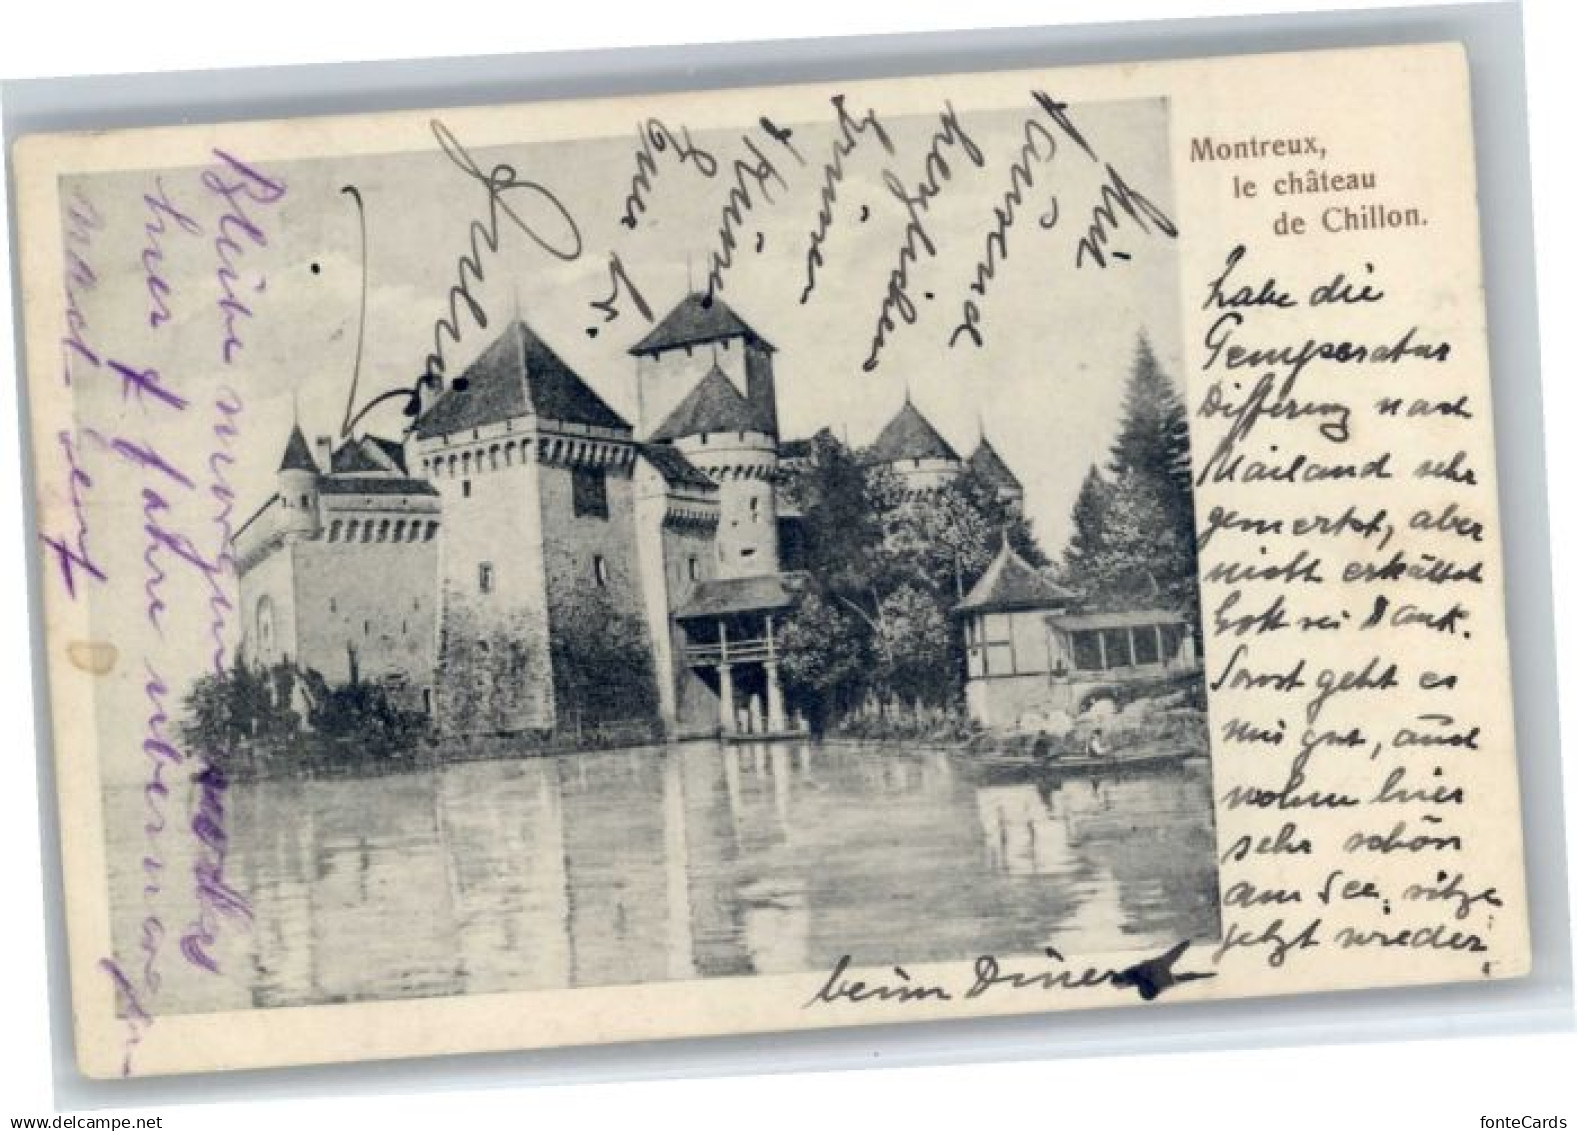 Montreux,
le château
de Chillon.
habe die
Temperatur
Differenz nach
Mailand sehr
gemerkt, aber
nicht erkältet
Gott sei Dank.
Sonst geht es
mir gut, auch
wohne hier
sehr schön
am See, sitze
jetzt wieder
beim Diner
Mit
tausend
herzlichen
Grüssen
& Küssen
Euer
Bleibe morgen
hier & fahre übermor-
nach Genf
delcampe.net
fonteCards